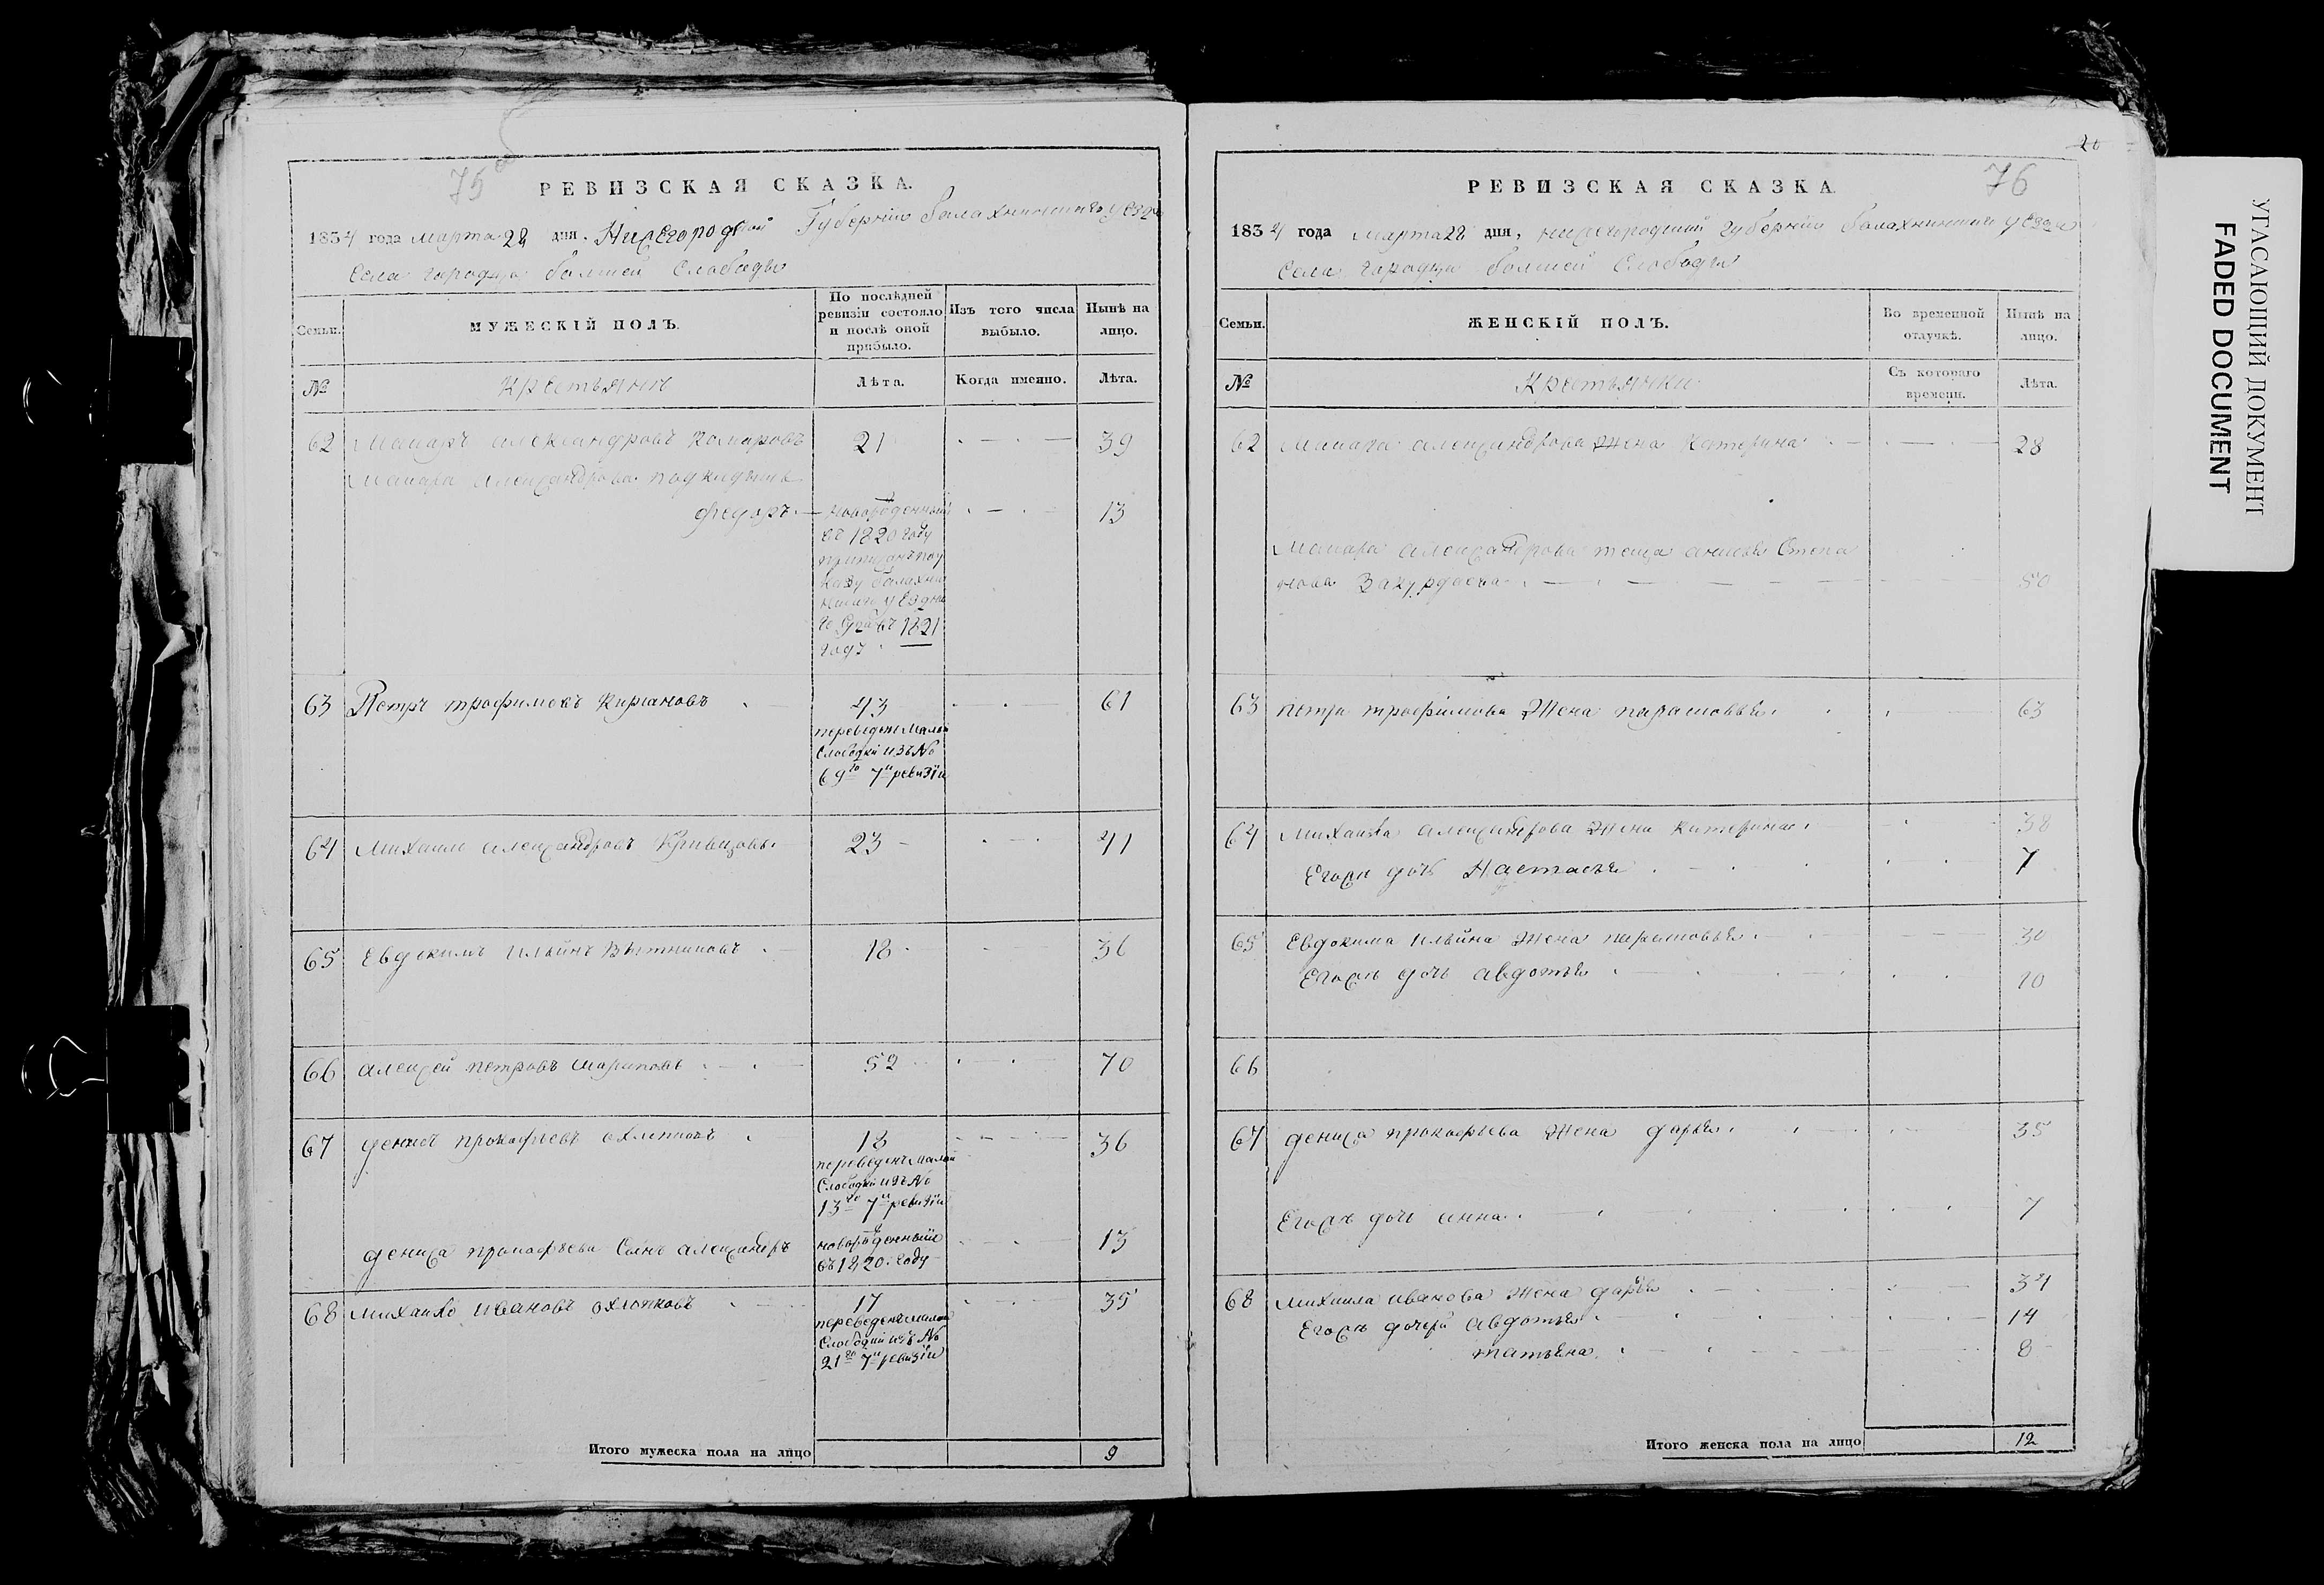 75
РЕВИЗСКАЯ СКАЗКА.
1834 года марта 28 дня. Нижегородской Губернии Балахнинскаго уезда
Села городца болшей Слободы
Семьи.
МУЖЕСКІЙ ПОЛЪ.
По послѣдней ревизіи состояло и послѣ оной прибыло.
Изъ того числа выбыло.
Нынѣ на лицо.
№
Крестьяня
Лѣта.
Когда именно.
Лѣта.
62 Макаръ александровъ Комаровъ 21 39
Макара александрова подкидышъ
Федоръ новорожденный 13
въ 1820 году
1821
63 Петръ трофимовъ Кирꙗновъ 43 61
переведен малой
Слободки изъ №
69го 7й ревизіи
64 Михаила александровъ 23 41
65 Евдокимъ Ильинъ 18 36
66 алексей петровъ 52 70
67 денисъ прокофьевъ охлопковъ 18 36
переведенъ малой
Слободки изъ №
13го 7й ревизіи
дениса прокофьева Сынъ александръ новорожденный 13
въ 1820 году
68 михайло ивановъ охлопковъ 17 35
переведенъ малой
Слободки изъ №
21го 7й ревизіи
Итого мужеска пола на лицо 9
20
76
РЕВИЗСКАЯ СКАЗКА.
1834 года Марта 28 дня, нижегородской губерніи балахнинскаго уезда
Села городца болшей Слободы
Семьи.
ЖЕНСКІЙ ПОЛЪ.
Во временной отлучкѣ.
Нынѣ на лицо.
№
Крестьянки
Съ котораго времени.
Лѣта.
62 Макара александрова Жена Катерина 28
Макара александрова теща Степа
нова 50
63 петра трофимова Жена парасковья 63
64 Михаила александрова Жена катерина 38
Егоже дочь Настасья 7
65 Евдокима ильина Жена парасковья 30
Егоже дочь авдотья 10
66
67 дениса прокофьева Жена дарья 35
Егожъ дочь анна 7
68 михаила иванова Жена дарья 34
Егожъ дочери авдотья 14
татьяна 8
Итого женска пола на лицо 12
УГАСАЮЩИЙ ДОКУМЕНТ
FADED DOCUMENT